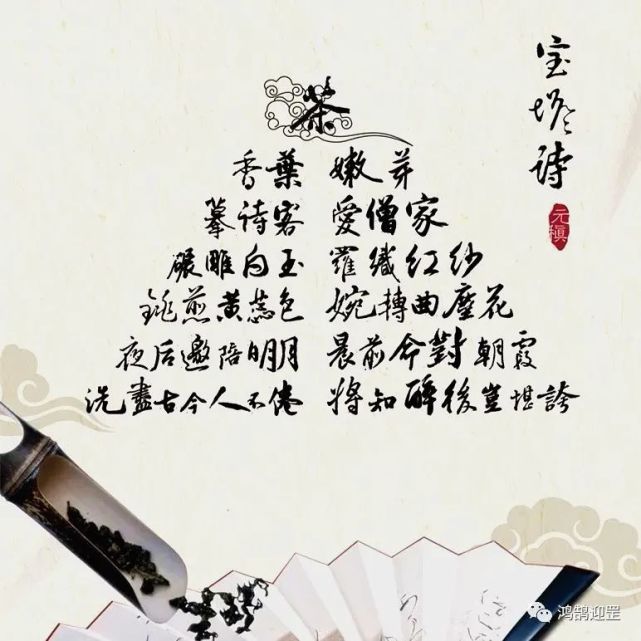 宝塔诗
元稹
茶
香葉 嫩芽
摹诗客 愛僧家
碾雕白玉 羅織红纱
銚煎黄蕊色 婉轉曲塵花
夜后邀陪明月 晨前今對朝霞
洗盡古今人不倦 将知醉後豈堪誇
鸿鹄迎罡